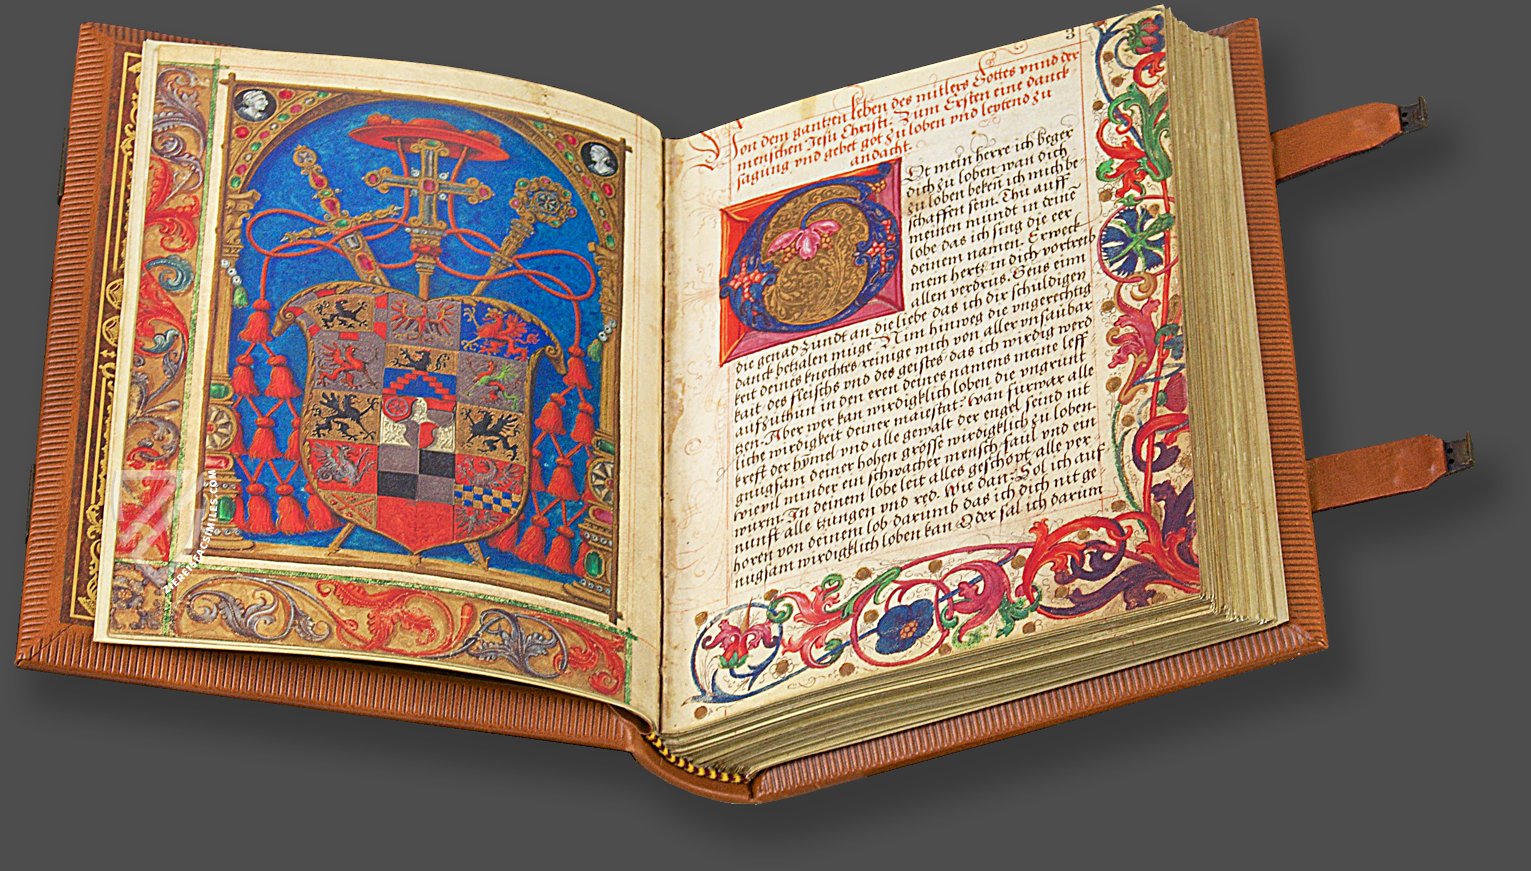 3
Von dem gantzen leben des mitlers Gottes vnnd der
menschen Jesu Christi. Zum Ersten eine danck
sagung vnd gebet got zu loben vnd leytend zu
andacht.
Ot mein herre ich beger
dich zu loben wan dich
zu loben beken ich mich be-
schaffen sein. Thu auff
meinen mundt in deine
lobe das ich sing die eer
deinem namen. Erweck
mein hertz in dich vortreib
allen verdrus. Geus einn
die genad Zundt an die liebe das ich dir schuldigen
danck betzalen muge. Nim hinweg die vngerechtig
keit deines knechtes reinige mich von aller vnsaubar
kait des fleischs vnd des geistes das ich wirdig werd
auffzuthun in den eren deines namens meine leff
tzen. Aber wer kan wirdigklich loben die vngruntt
liche wirdigkeit deiner maiestat. Wan furwar alle
kreft der hymel vnd alle gewalt der engel seind nit
gnugsam deiner hohen grösse wirdigklich zu loben.
wievil minder ein schwacher mensch faul vnd ein
wurm. In deinem lobe leit alles geschöpf alle ver-
nunft alle tzungen vnd red. Wie dan. Sol ich auf
horen von deinem lob darumb das ich dich nit ge
nugsam wirdigklich loben kan. Oder sal ich darum